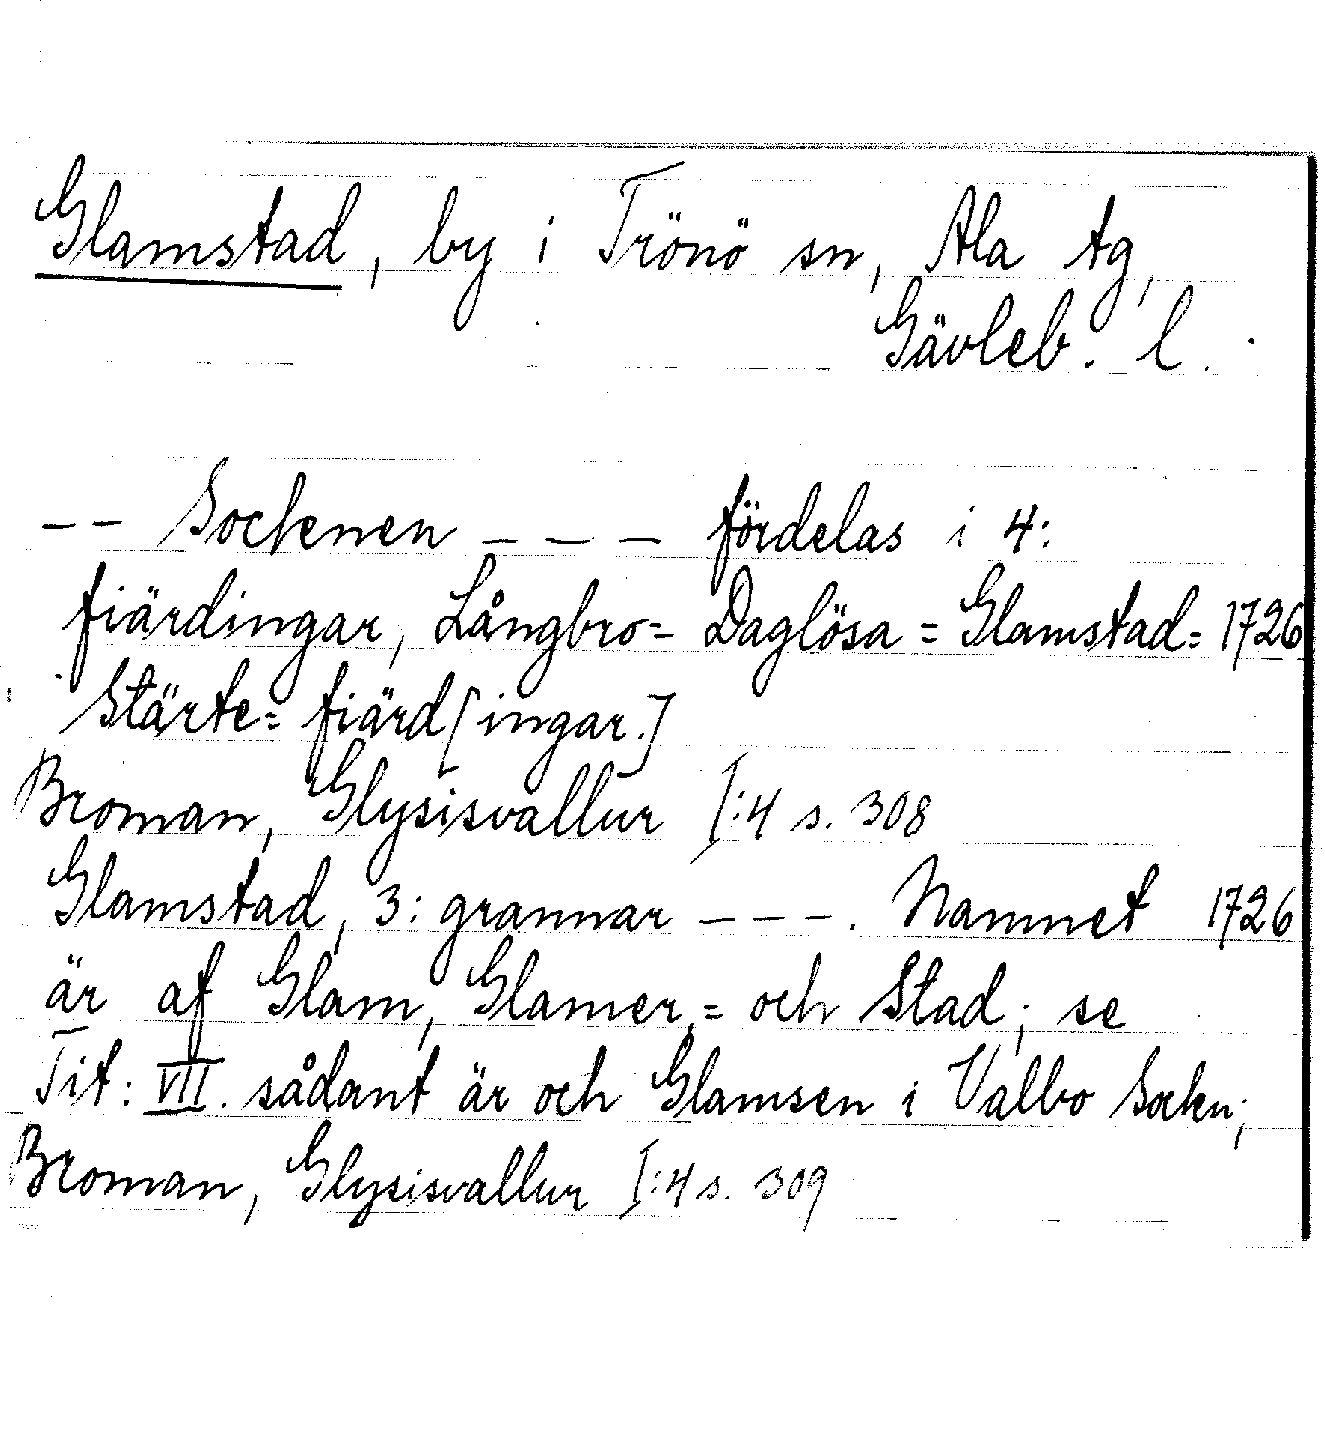 Glamstad, by i Trönö sn, Ala tg,
Gävleb. l.
-- Sockenen --- fördelas i 4:
fiärdingar, Långbro= Daglösa= Glamstad= 1726
Stärte= fiärd[ingar.]
Broman, Glysisvallur I:4 s. 308
Glamstad, 3: grannar ---. Namnet 1726
är af Glam, Glamer,= och Stad; se
Tit: VII. sådant är och Glamsen i Valbo Sockn;
Broman, Glysisvallur I:4 s. 309